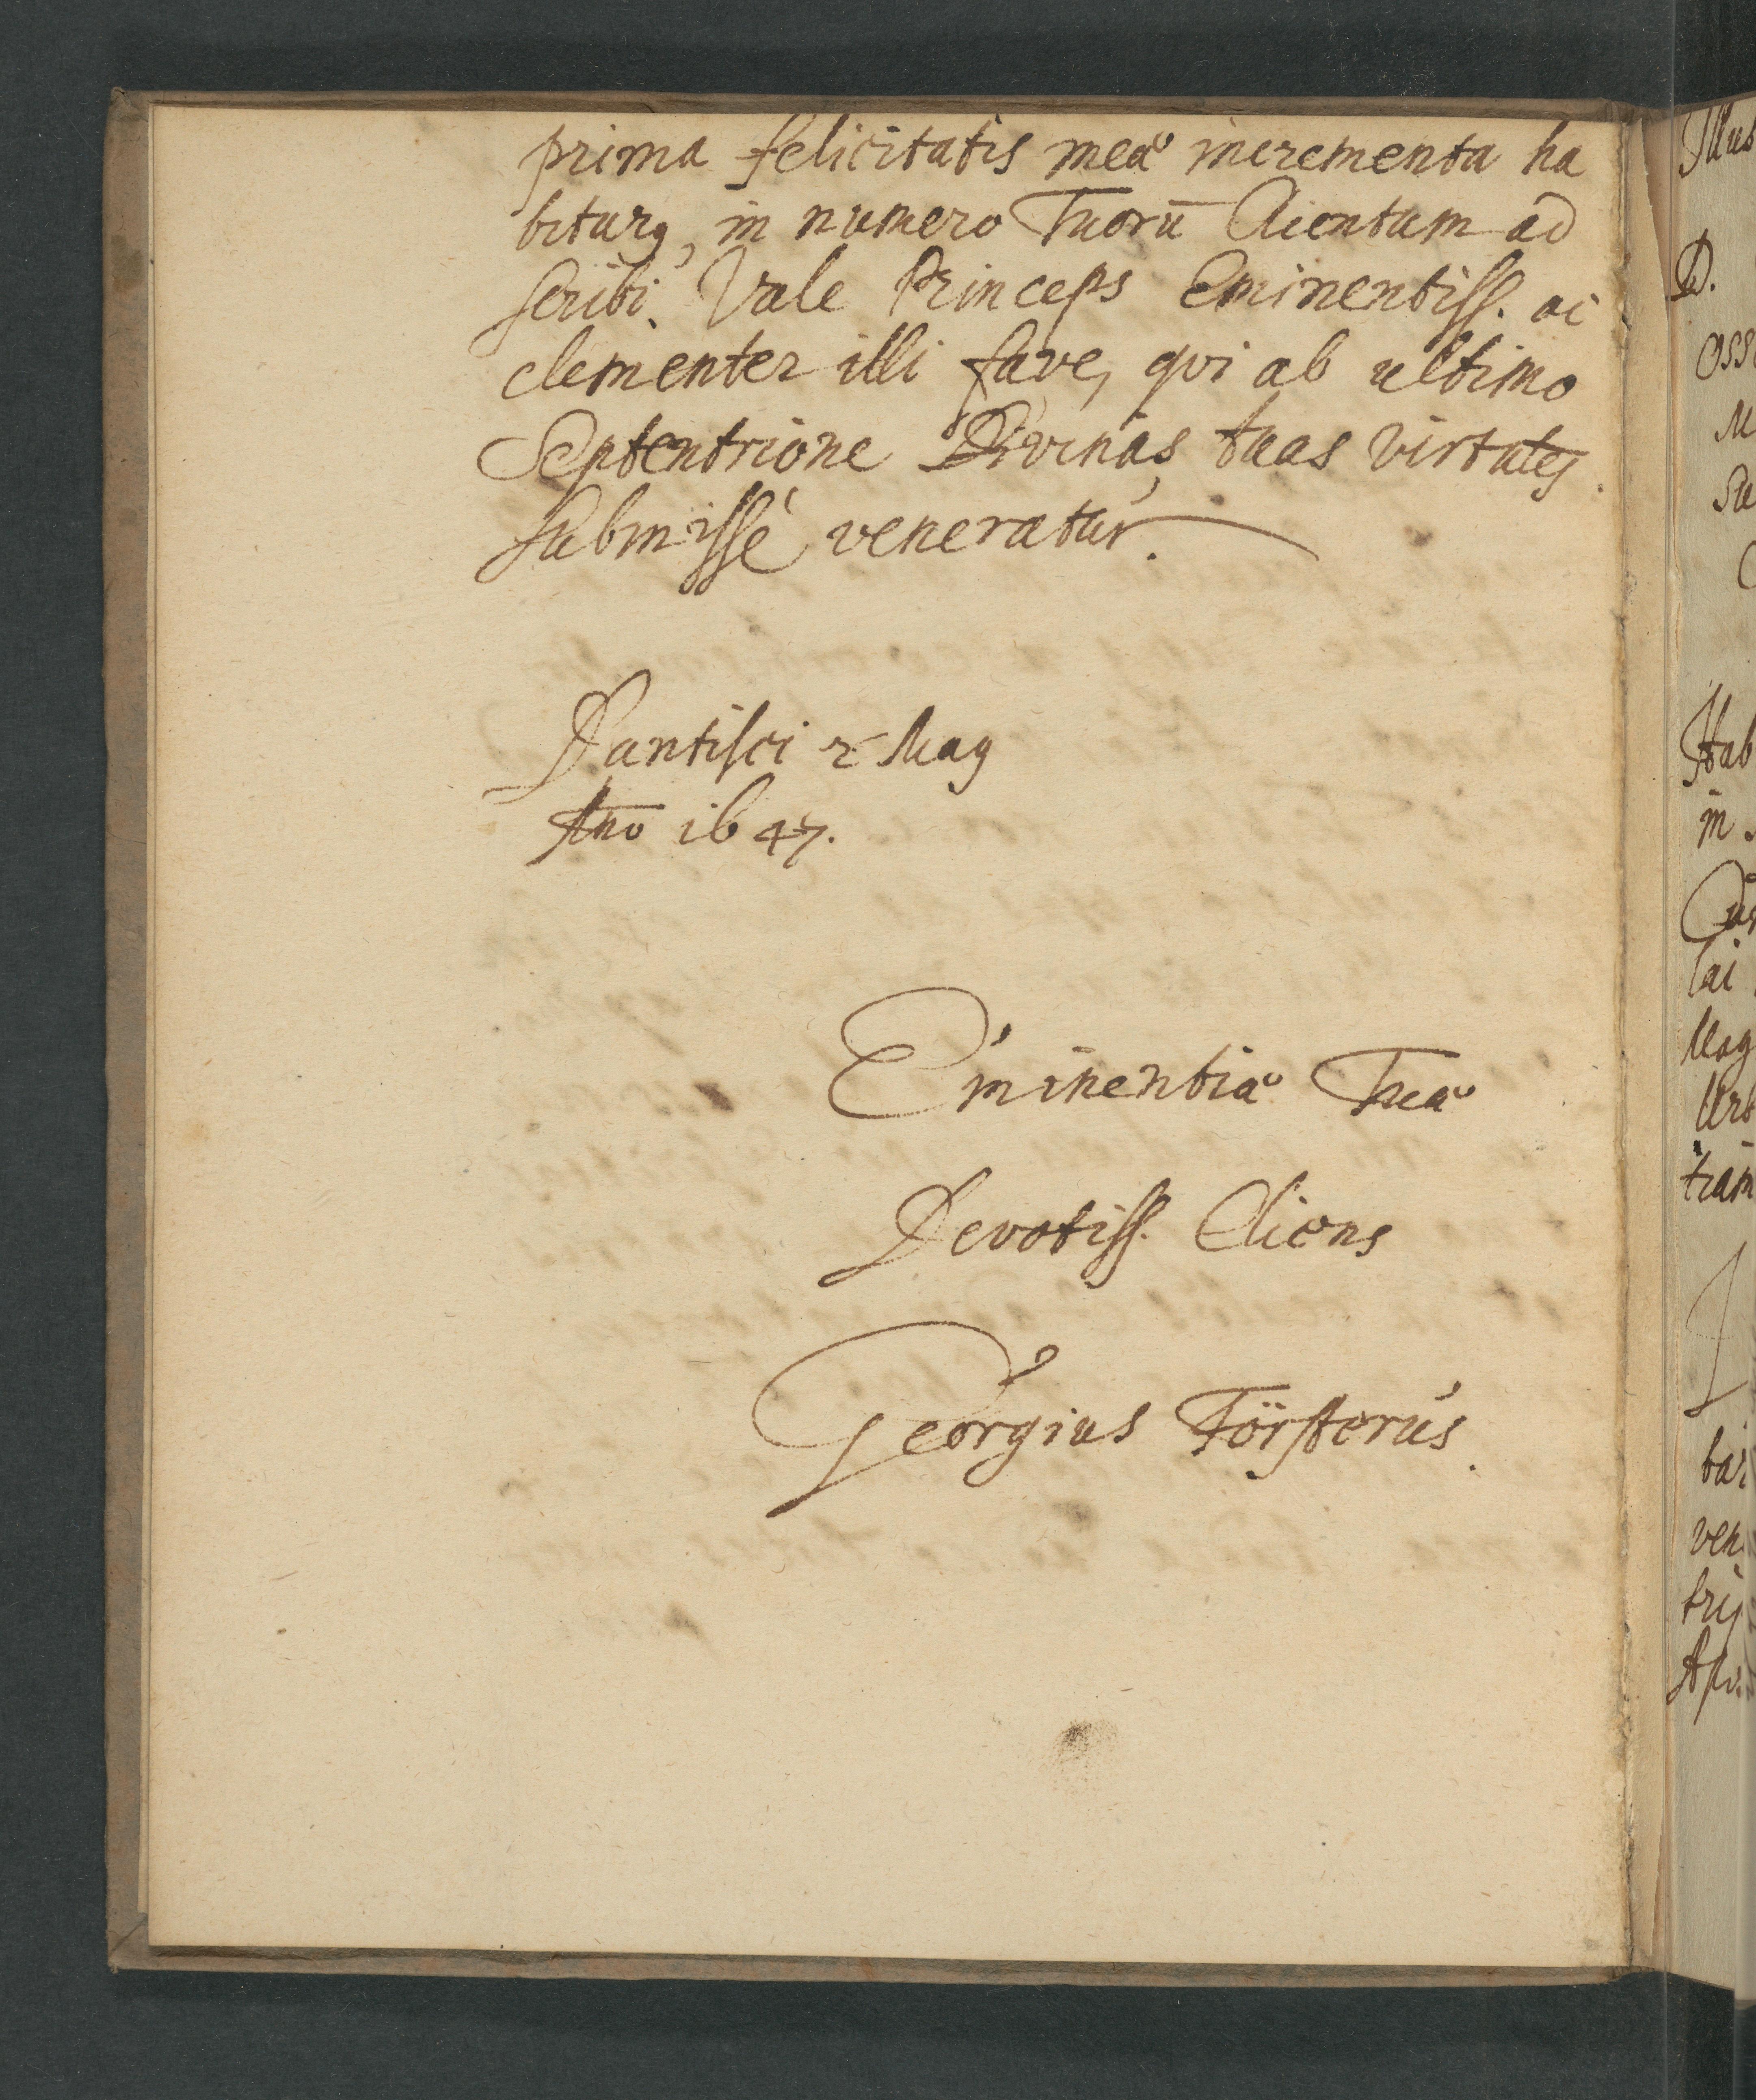 prima felicitatis meæ incrementa ha
biturq, in numero Tuorū Clientum ad
scribi. Vale Princeps Eminentiss. ac
clementer illi fave, qvi ab ultimo
Septentrione Divinas tuas virtutes
submissè veneratur.
Dantisci 2 Maÿ
Año 1647.
Eminentiæ Tuæ
Devotiss. Cliens
Georgius Försterus.